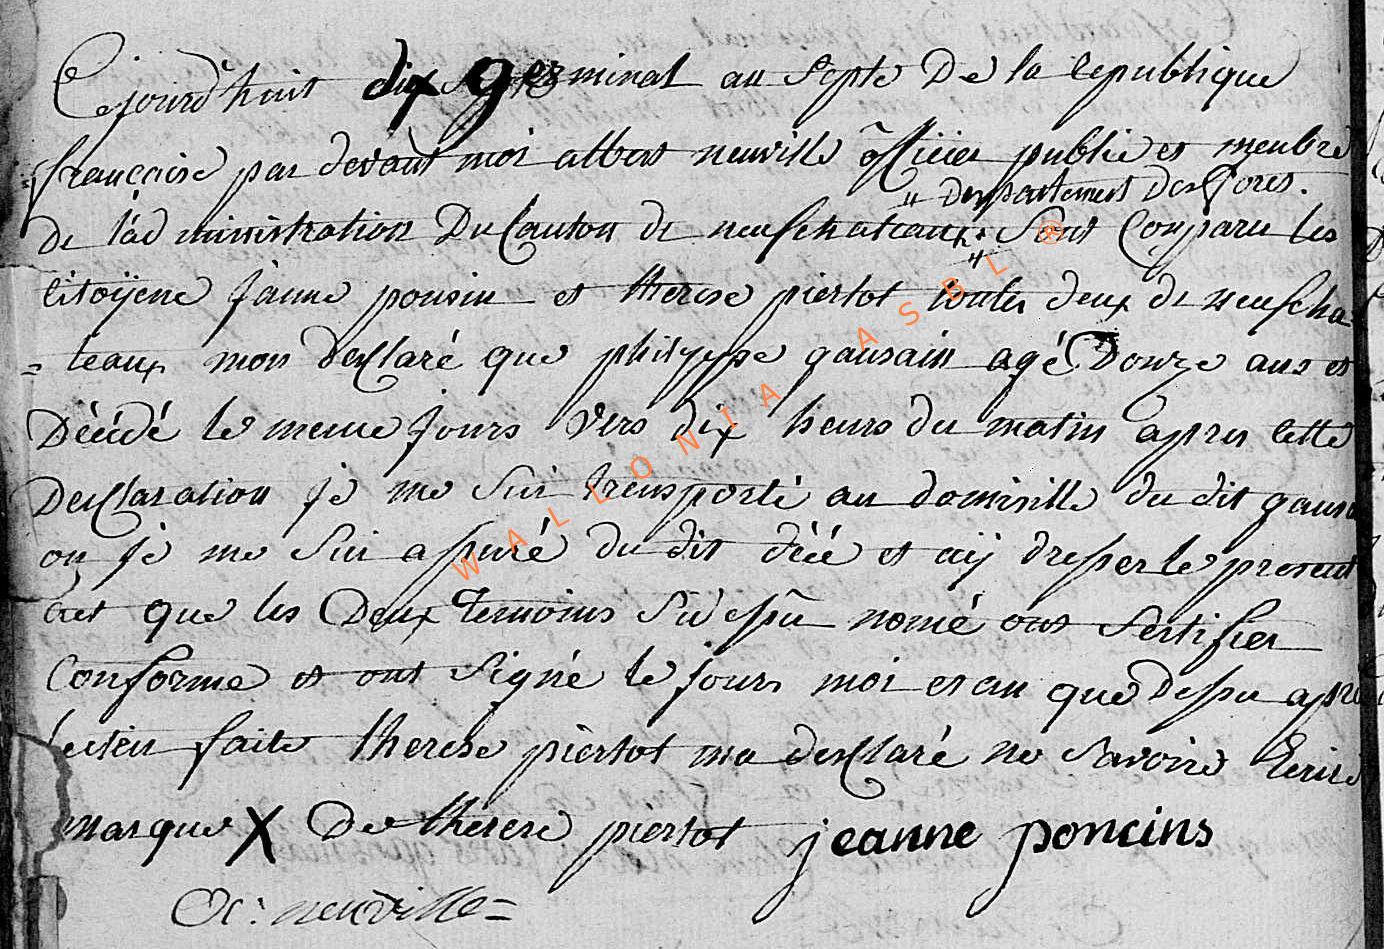 Cejourd'huit dix germinal an septe De la republique
françoise par devant moi albert neuville officier publie et menbre
" departement des fores.
de l'ad ministration Du Canton de neufchateaux Sont Comparu les
Citoÿene Janne ponsin et therese piertot toutes deux de neufcha-
= teaux mon desclaré que philyppe gausain agé Douze ans et
Décédé le meme jours vers dix heurs du matin apres cette
Desclaration je me suis transporté au domisille du dit gausa
ou je me sui assuré du dit décé et aÿ dresser le present
act que les Deux temoins Si dessu nomé ont Sertifier
Conforme et ont Signé le jours moi et an que dessu apre
lecteur faite therese piertot ma desclaré ne Savoire Ecrire
marque X De therese piertot jeanne poncins
neuville =
WALLONIA ASBL ®